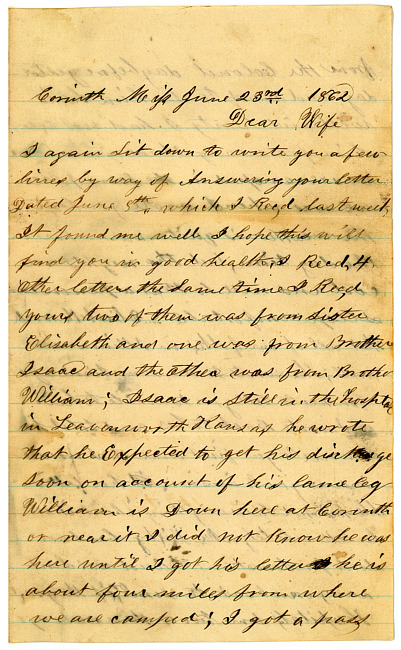 Corinth Miss June 23rd 1862
Dear Wife
I again Sit down to write you a few
lines by way of Answering your letter
Dated June 8th which I Recd last week
It found me well I hope this will
find you in good health, I Recd, 4
Other letters the same time I Recd
yours two of them was from Sister
Elisabeth and one was from Brother
Isaac and the other was from Brother
William; Isaac is still in the Hospital
in Leavenworth Kansas he wrote
that he Expected to get his discharge
soon on account of his lame leg
William is Down here at Corinth
or near it I did not Know he was
here until I got his letter he is
about four miles from where
we are camped; I got a pass